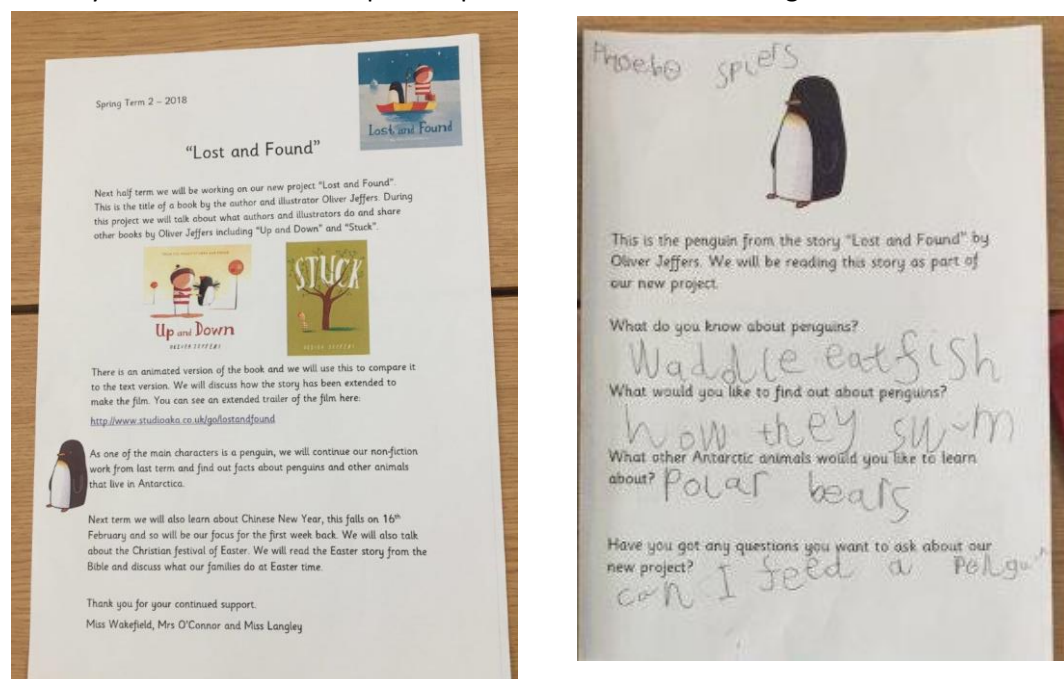 Spring Term 2 – 2018
Lost and Found
"Lost and Found"
Next half term we will be working on our new project "Lost and Found".
This is the title of a book by the author and illustrator Oliver Jeffers. During
this project we will talk about what authors and illustrators do and share
other books by Oliver Jeffers including "Up and Down" and "Stuck".
Up and Down
OLIVER JEFFERS
STUCK
There is an animated version of the book and we will use this to compare it
to the text version. We will discuss how the story has been extended to
make the film. You can see an extended trailer of the film here:
http://www.studioaka.co.uk/go/lostandfound
As one of the main characters is a penguin, we will continue our non-fiction
work from last term and find out facts about penguins and other animals
that live in Antarctica.
Next term we will also learn about Chinese New Year, this falls on 16th
February and so will be our focus for the first week back. We will also talk
about the Christian festival of Easter. We will read the Easter story from the
Bible and discuss what our families do at Easter time.
Thank you for your continued support.
Miss Wakefield, Mrs O'Connor and Miss Langley
Phoebe Spiers
This is the penguin from the story "Lost and Found" by
Oliver Jeffers. We will be reading this story as part of
our new project.
What do you know about penguins?
Waddle eat fish
What would you like to find out about penguins?
how they swim
What other Antarctic animals would you like to learn
about? Polar bears
Have you got any questions you want to ask about our
new project?
can I feed a Penguin